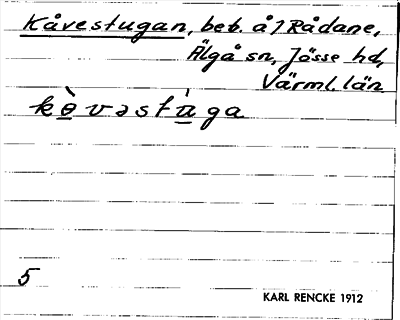 Kåvestugan, beb. å 7 Rådane,
Älgå sn, Jösse hd,
Värml. län
kòvəstùga
5
KARL RENCKE 1912